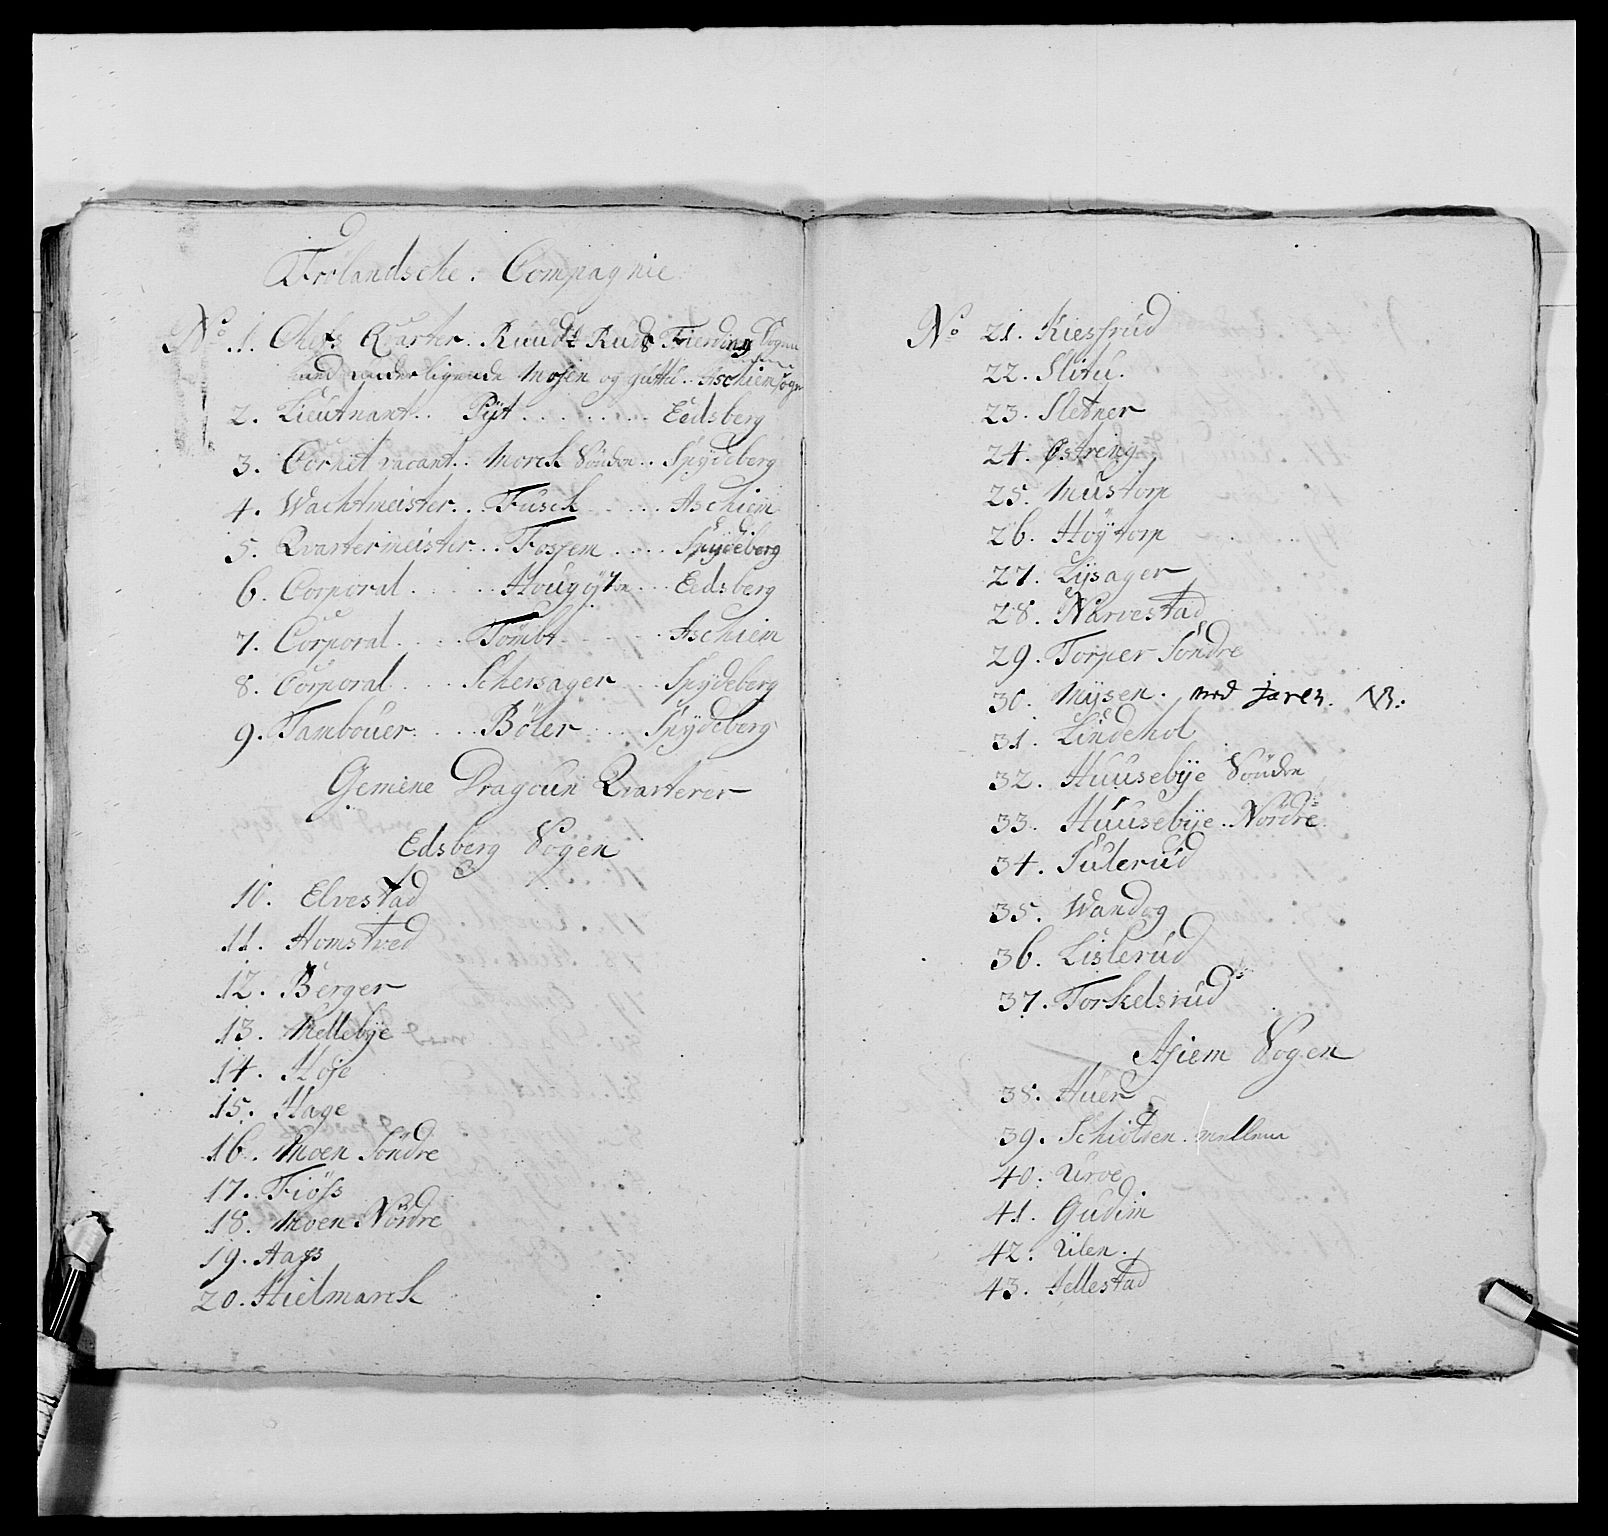 Frølandsche. Compagnie
No 1. Chefs Qvarter. Ruudt Ruds Fierding Sogen
med underliigende Mosen og Aschiem sogn
2. Lieutnant.. Pyt ........ Eedsberg
3. Cornet vacant.. Morck Sönden.. Spydeberg
4. Wachtmeister... Fusck ..... Aschiem
5. Qvartermeister... Fossem .... Spydeberg
6. Corporal ..... Hougöyten... Eedsberg
7. Corporal .... Tömbt ...... Aschiem
8. Corporal .... Schersager ... Spydeberg
9. Tambouer .... Böler .... Spydeberg
Gemene Dragoun Qvarterer
Edsberg Sogen
10. Elvestad
11. Homstved
12. Berger
13. Mellebye
14. Hoje
15. Hage
16. Moen Söndre
17. Fiöss
18. Moen Nordre
19. Aass
20. Hielmarck
No 21. Kiessrud
22. Slitu.
23. Sletner
24. Østreng
25. Mustorp
26. Höytorp
27. Lysager
28. Narvestad
29. Torper Söndre
30. Mysen. med Jaren. NB.
31. Lindehol
32. Huusebye Sönden
33. Huusebye Nordre
34. Sulerud
35. Wandog
36. Lislerud
37. Torkelsrud
Asiem Sogen
38. Huer
39. Schiolsen mellem
40. Uroe
41. Gudim
42. Ulen.
43. Hellestad